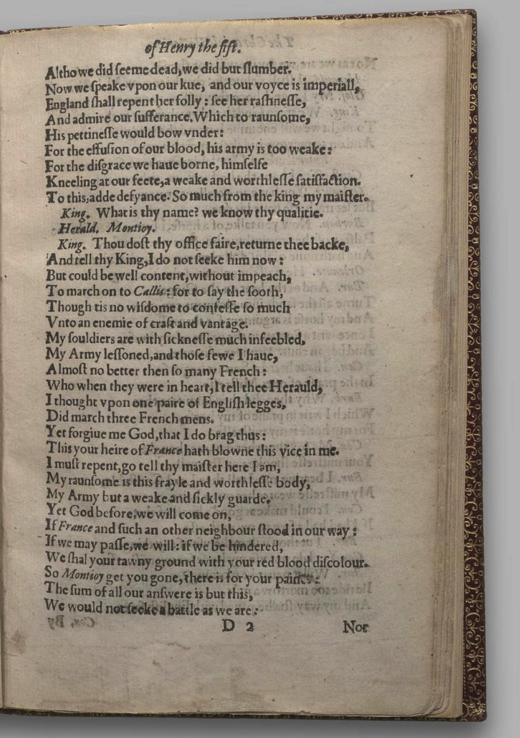 of Henry the fift.
Altho we did seeme dead, we did but slumber.
Now we speake vpon our kue, and our voyce is imperiall,
England shall repent her folly: see her rashnesse,
And admire our sufferance. Which to raunsome,
His pettinesse would bow vnder:
For the effusion of our blood, his army is too weake:
For the disgrace we haue borne, himselfe
Kneeling at our feete, a weake and worthlesse satisfaction.
To this, adde defyance. So much from the king my maister.
King. What is thy name? we know thy qualitie.
Herald. Montioy.
King. Thou dost thy office faire, returne thee backe,
And tell thy King, I do not seeke him now:
But could be well content, without impeach,
To march on to Callis: for to say the sooth,
Though tis no wisdome to confesse so much
Vnto an enemie of craft and vantage.
My souldiers are with sicknesse much infeebled,
My Army lessoned, and those fewe I haue,
Almost no better then so many French:
Who when they were in heart, I tell thee Herauld,
I thought vpon one paire of English legges,
Did march three French mens.
Yet forgiue me God, that I do brag thus:
This your heire of France hath blowne this vice in me.
I must repent, go tell thy maister here I am,
My raunsome is this frayle and worthlesse body,
My Army but a weake and sickly guarde.
Yet God before, we will come on,
If France and such an other neighbour stood in our way:
If we may passe, we will: if we be hindered,
We shal your tawny ground with your red blood discolour.
So Montioy get you gone, there is for your paines:
The sum of all our answere is but this,
We would not seeke a battle as we are:
D 2 Nor